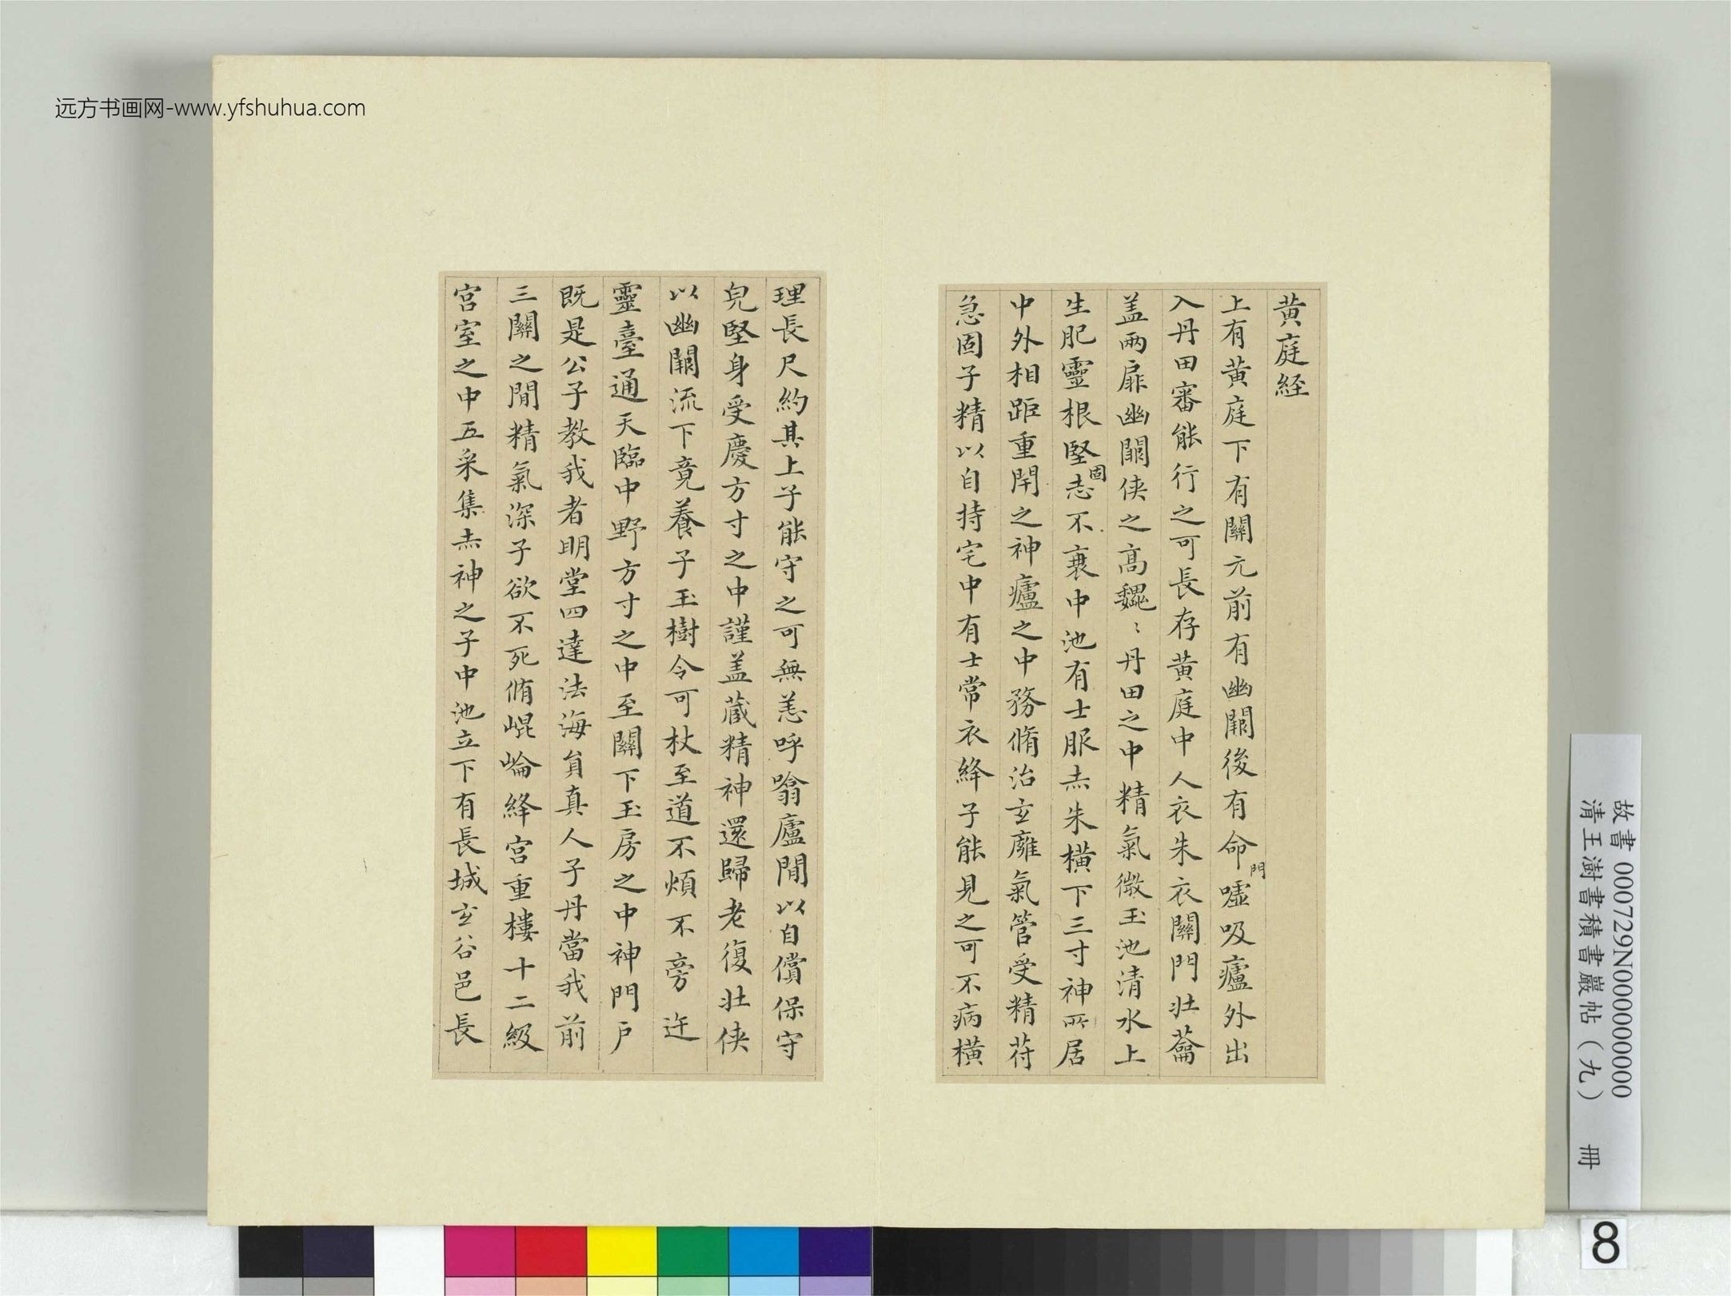 远方书画网-www.yfshuhua.com
黄庭経
上有黄庭下有關元前有幽闕後有命門嘘吸廬外出
入丹田審能行之可長存黄庭中人衣朱衣關門壮蘥
盖兩扉幽闕侠之高魏〻丹田之中精氣微玉池清水上
生肥靈根堅固志不衰中池有士服赤朱横下三寸神所居
中外相距重閇之神廬之中務脩治玄癰氣管受精苻
急固子精以自持宅中有士常衣絳子能見之可不病横
理長尺約其上子能守之可無恙呼噏廬間以自償保守
皃堅身受慶方寸之中謹盖藏精神還歸老復壮侠
以幽闕流下竟養子玉樹令可杖至道不煩不旁迕
靈臺通天臨中野方寸之中至關下玉房之中神門户
既是公子教我者明堂四達法海貟真人子丹當我前
三關之間精氣深子欲不死脩崐崘絳宫重樓十二級
宫室之中五采集赤神之子中池立下有長城玄谷邑長
故書 000729N000000000
清王澍書積書巖帖（九） 冊
8